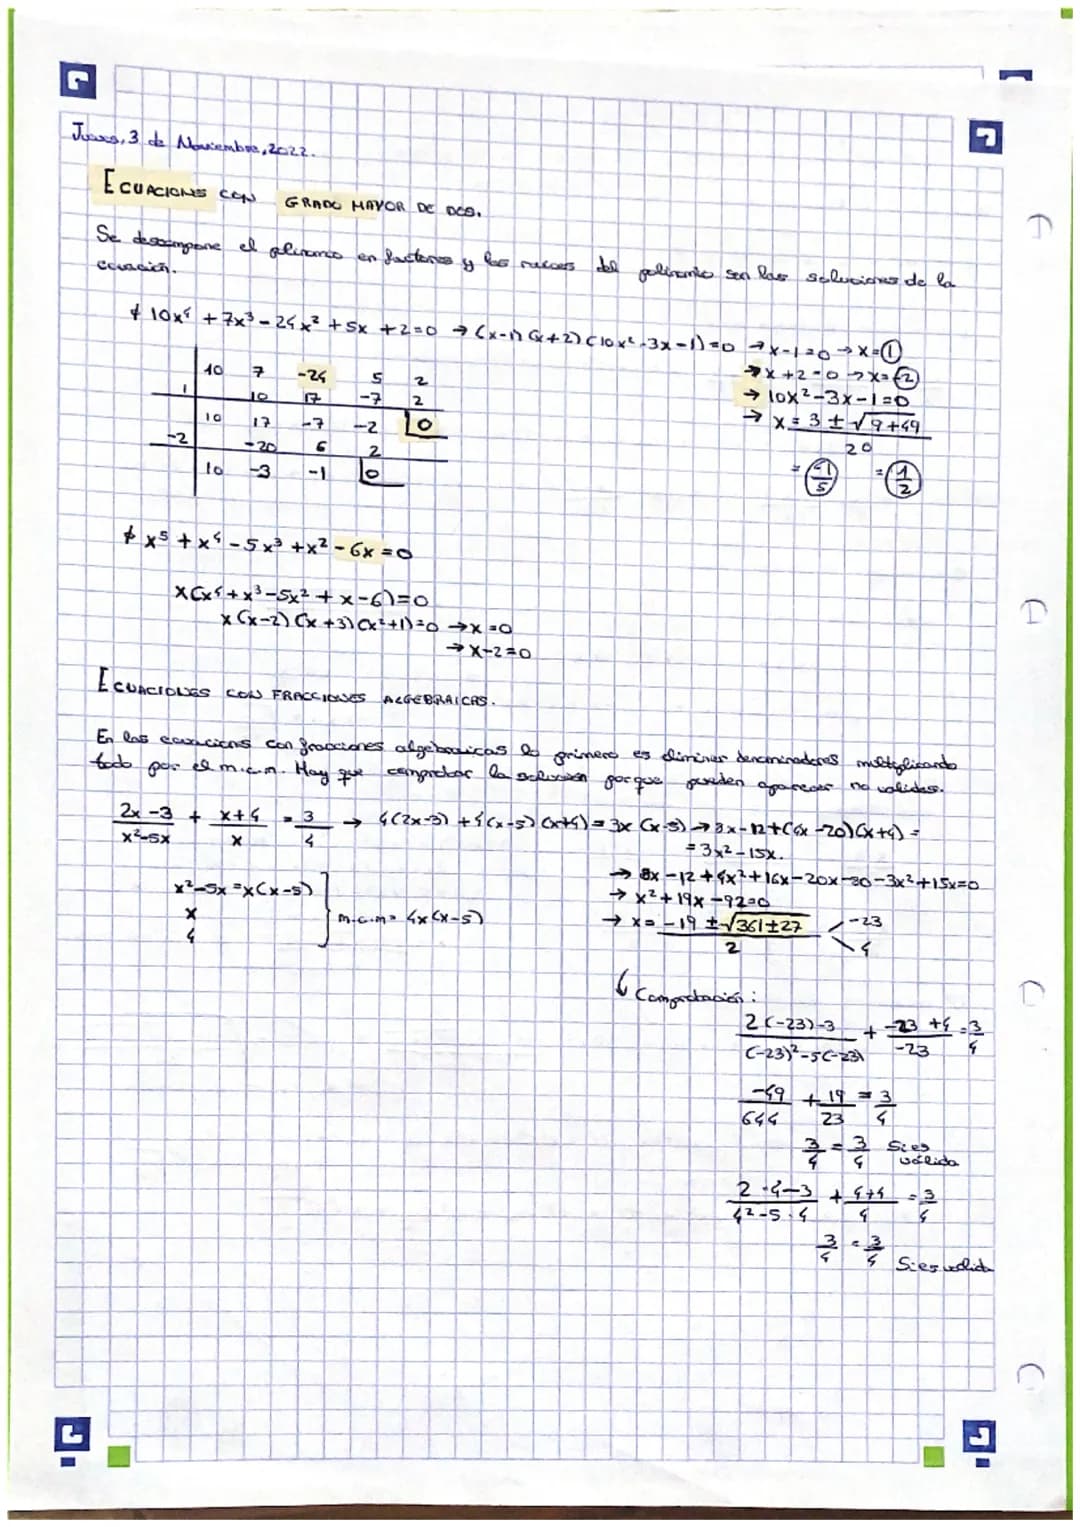 Jueves, 3 de Noviembre, 2022.
ECUACIONES CON GRADO MAYOR DE DOS.
Se descompone el polinomio en factores y las raíces del polinomio son las soluciones de la
ecuación.
10x⁴ + 7x³ - 24x² + 5x + 2 = 0 → (x-1)(x+2)(10x²-3x-1) = 0 → x-1=0 → x=1
→ x+2=0 → x=-2
→ 10x²-3x-1=0
→ x = 3 ± √9+49
20
= -1/5 = 1/2
10 7 -24 5 2
1 10 17 -7 2
10 17 -7 -2 0
-2 -20 6 2
10 -3 -1 0
x⁵ + x⁴ - 5x³ + x² - 6x = 0
x(x⁴+x³-5x²+x-6)=0
x(x-2)(x+3)(x²+1)=0 → x=0
→ x-2=0
ECUACIONES CON FRACCIONES ALGEBRAICAS.
En las ecuaciones con fracciones algebraicas lo primero es eliminar denominadores multiplicando
todo por el m.c.m. Hay que comprobar la solución porque pueden aparecer no validas.
2x-3 / x²-5x + x+4 / x = 3/4 → 4(2x-3) + 4(x-5)(x+4) = 3x(x-5) → 8x-12+(4x-20)(x+4) =
= 3x²-15x.
→ 8x-12+4x²+16x-20x-80-3x²+15x=0
→ x²+19x-92=0
→ x = -19 ± √361±27 / 2 -23 4
x²-5x = x(x-5)
x
4
m.c.m = 4x(x-5)
Comprobación:
2(-23)-3 / (-23)²-5(-23) + -23+4 / -23 = 3/4
-49/644 + 19/23 = 3/4
3/4 = 3/4 Si es
válida
2·4-3 / 4²-5·4 + 4+4 / 4 = 3/4
3/4 = 3/4 Si es valida